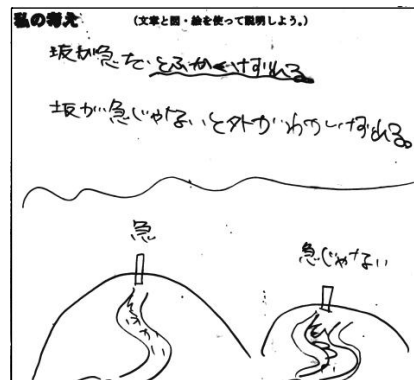 私の考え (文章と図・絵を使って説明しよう。)
坂が急だとふかくけずれる
坂が急じゃないと外がわがけずれる。
急
急じゃない